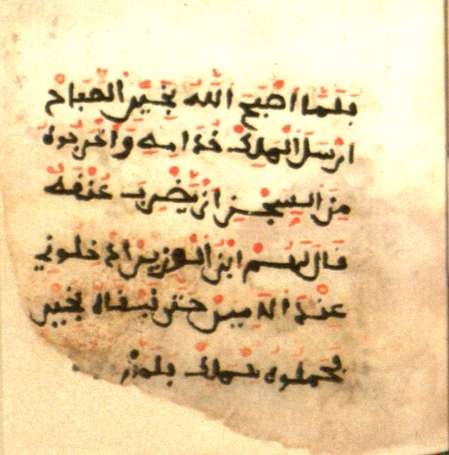 فلما اصبح الله بخير الصباح
ارسل الملك خدامه واخرجوه
من السجن ان يضرب عنقه
قال لهم ابن الوزير ادخلوني
عند الامير حتى بخير
فحملوه للملك